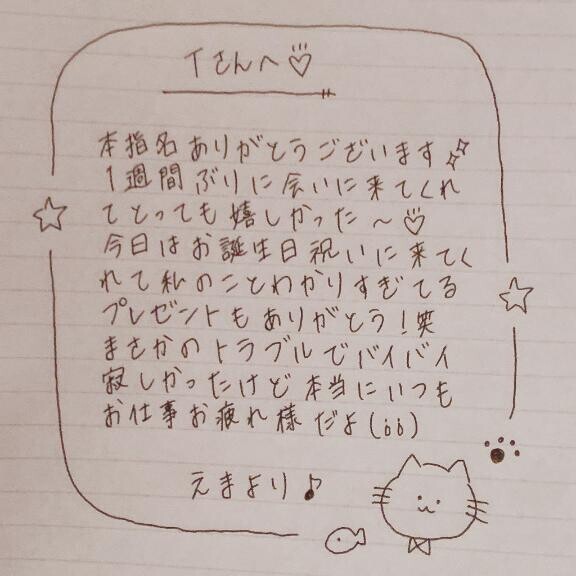 Tさんへ♡
本指名ありがとうございます✨
1週間ぶりに会いに来てくれ
てとっても嬉しかった～♡
今日はお誕生日祝いに来てく
れて私のことわかりすぎてる
プレゼントもありがとう！笑
まさかのトラブルでバイバイ
寂しかったけど本当にいつも
お仕事お疲れ様だよ(६६)
えまより♪